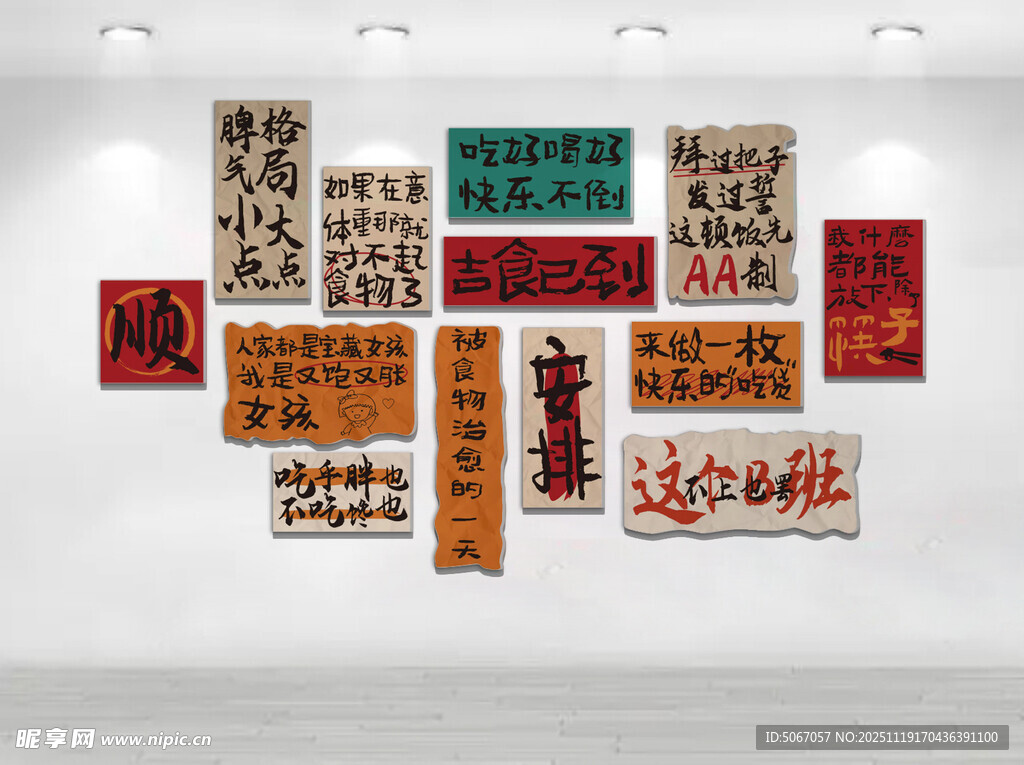 顺
格局大点
脾气小点
如果在意
体重那就
对不起
食物了
吃好喝好
快乐不倒
吉食已到
拜过把子
发过誓
这顿饭先
AA制
我什麼
都能
放下,除了
筷子
人家都是宝藏女孩
我是又饱又胀
女孩
被食物治愈的一天
安排
来做一枚
快乐的"吃货"
吃乎胖也
不吃馋也
这个B班
不上也罢
昵享网 www.nipic.cn
ID:5067057 NO:20251119170436391100